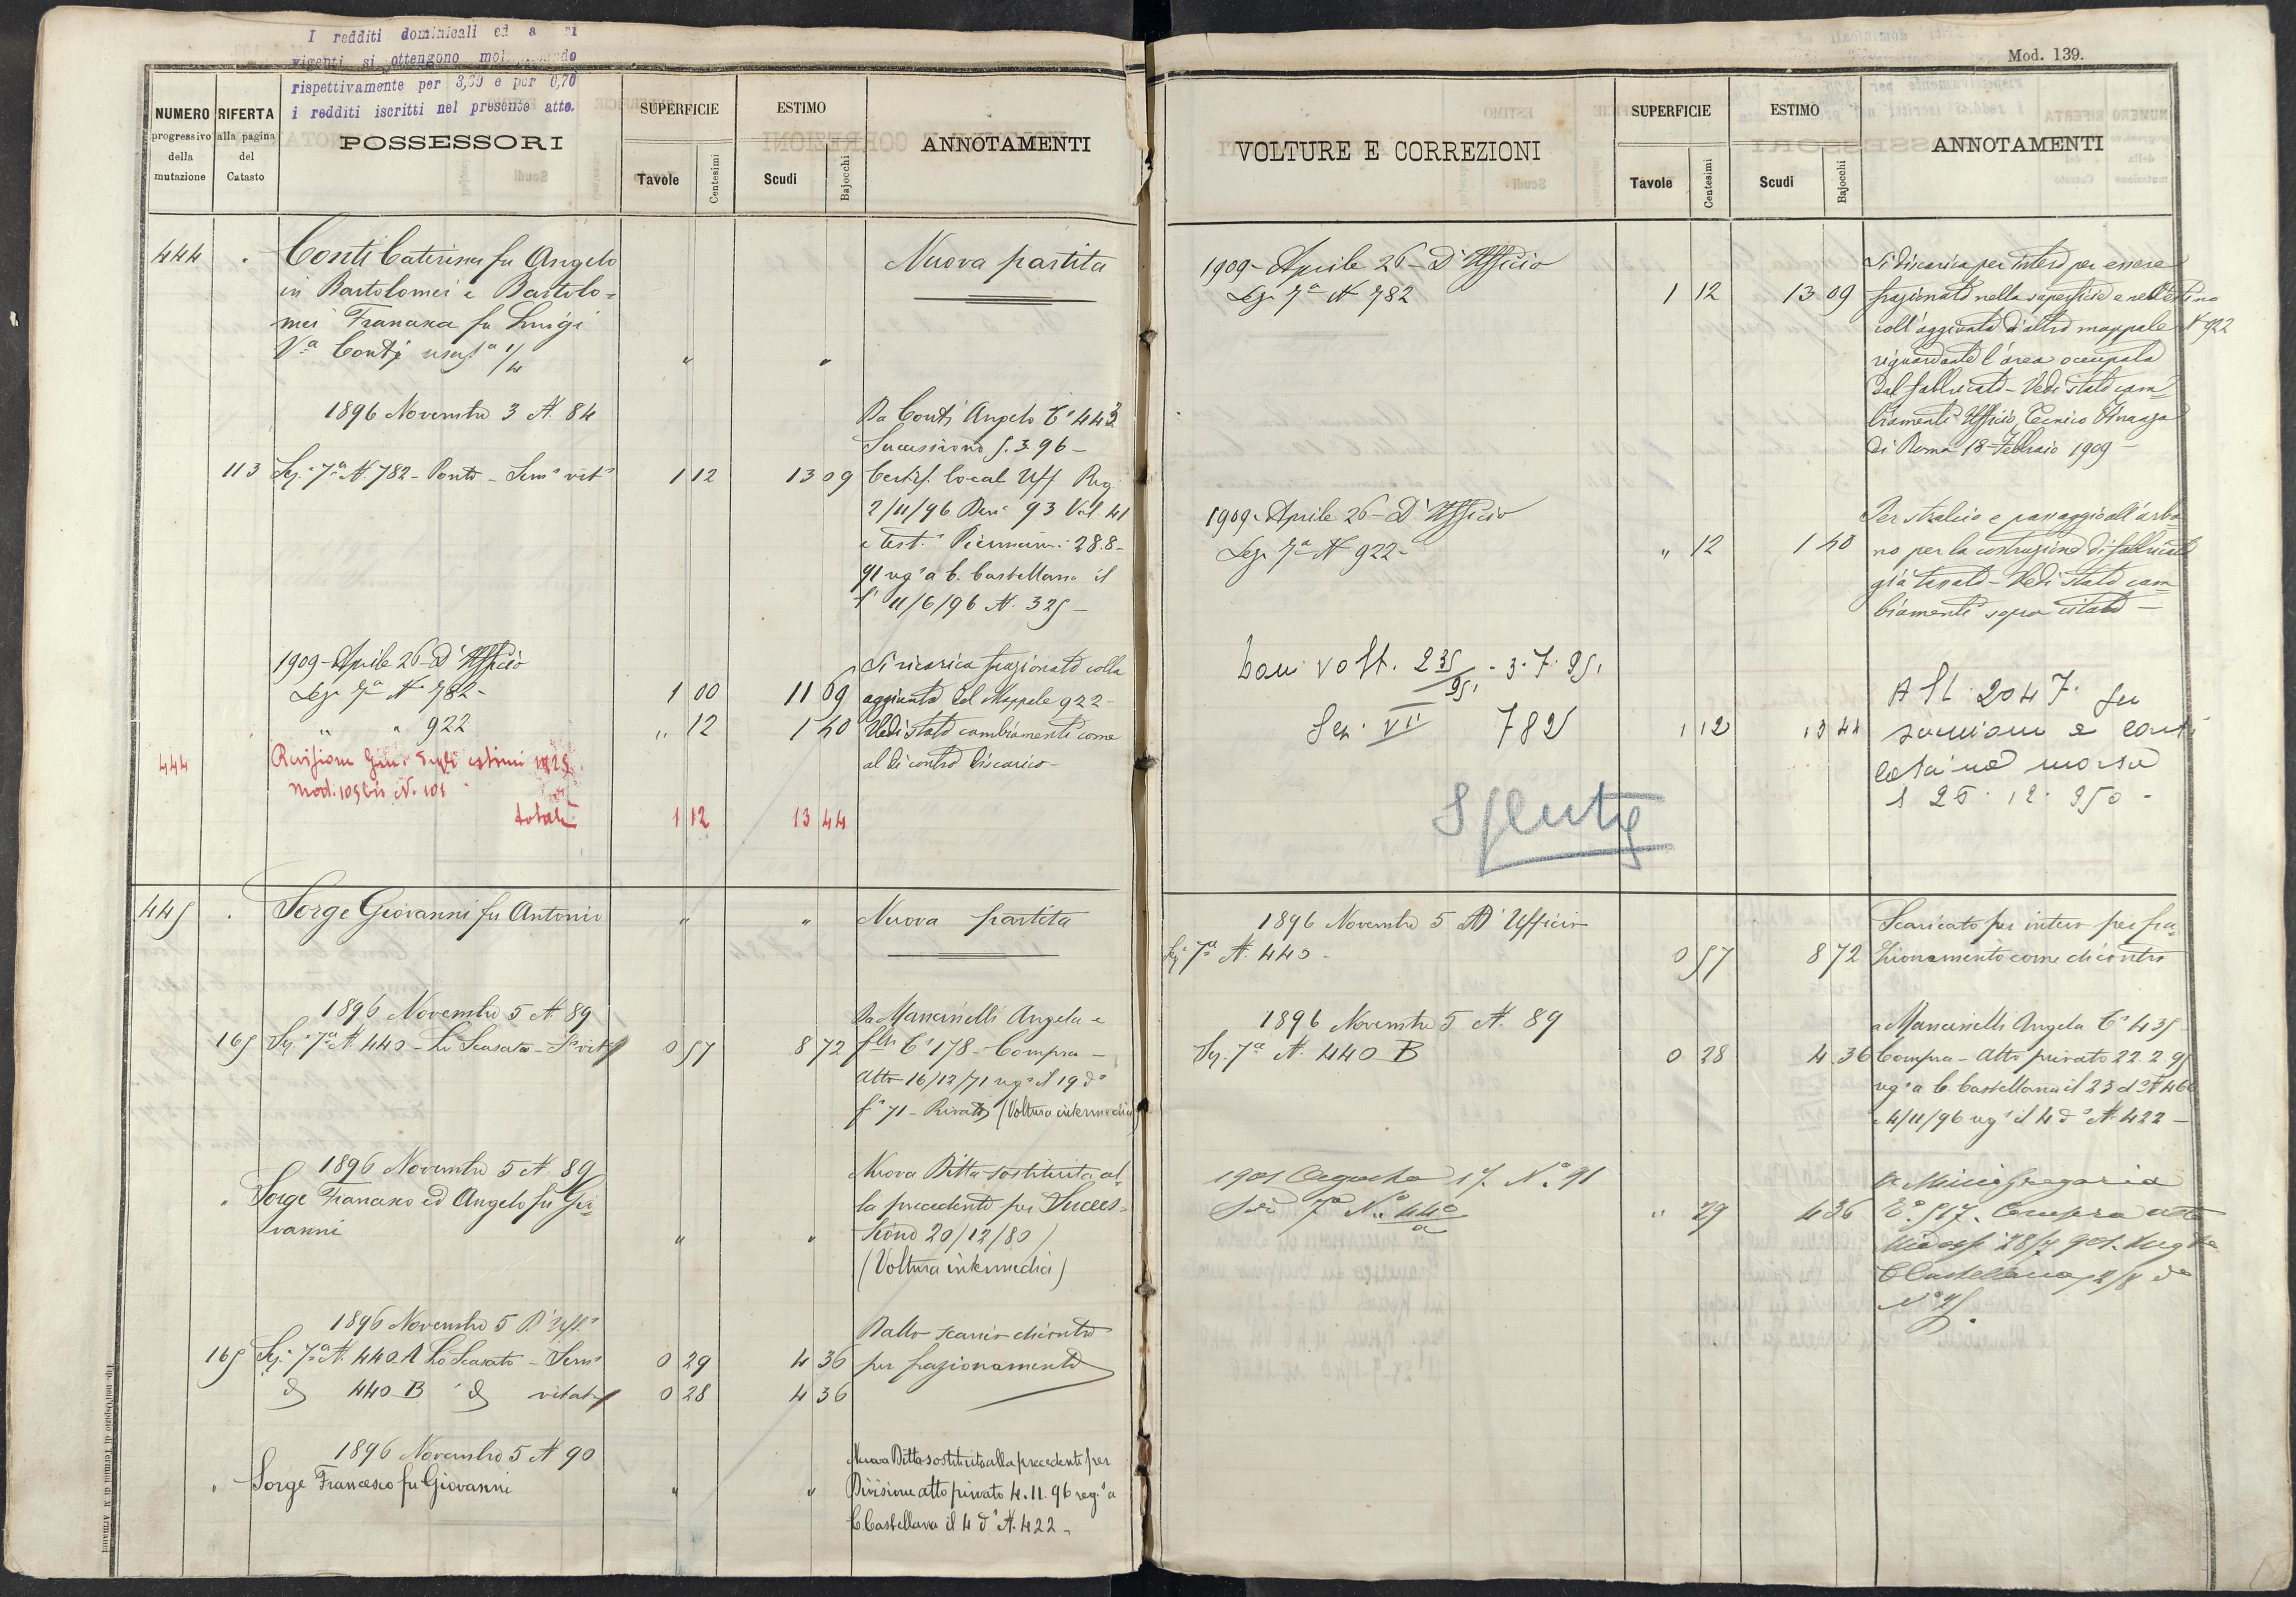 I redditi dominicali ed a
vigenti si ottengono
rispettivamente per 3,30 e per 0,70
i redditi iscritti nel presente atto.
NUMERO
progressivo
della
mutazione
RIFERTA
alla pagina
del
Catasto
POSSESSORI
SUPERFICIE
Tavole
Centesimi
ESTIMO
Scudi
Bajocchi
ANNOTAMENTI
444 Conti Caterina fu Angelo Nuova partita
in Bartolomei e Bartolo=
mei Francesca fu Luigi
Va Conti " "
1896 Novembre 3 N. 84 Da Conti Angelo Co 443
Successione
113 Sez. 7a N. 782 - Ponte - Semo vito 1 12 13 09 Certif. local Uff Reg
2/11/96 93 Vol. 41
e test. 28.8-
91 rego a C. Castellana il
11/6/96 N. 325 -
1909 - Aprile 26 - D'Ufficio Si ricarica frazionato colla
Sez. 7a N 782 - 1 00 11 69 aggiunta del Mappale 922 -
" " 922 " 12 1 40 Vedi stato cambiamenti come
al di contro discarico -
444 Revisione Gen. degli estimi 1925
mod. 105 bis N. 101
totale 1 12 13 44
445 Sorge Giovanni fu Antonio " " Nuova partita
1896 Novembre 5 N. 89 Da Mancinelli Angela e
165 Sez. 7a N. 440 - Lo Scasato - So vito 0 57 8 72 flli Co 178 - Compra -
Atto 16/12/71 rego il 19 do
fo 71 - Privato (Voltura intermedia)
1896 Novembre 5 N. 89 Nuova Ditta sostituita al=
Sorge Francesco ed Angelo fu Gio= la precedente per Succes=
vanni " " sione 20/12/80
(Voltura intermedia)
1896 Novembre 5 D'Uffo Dallo scarico dicontro
165 Sez. 7a N. 440 A Lo Scasato - Semo 0 29 4 36 per frazionamento
440 B vitato 0 28 4 36
1896 Novembre 5 N 90 Nuova Ditta sostituita alla precedente per
Sorge Francesco fu Giovanni " " Divisione atto privato 4.11.96 rego a
C Castellana il 4 do N. 422 -
Mod. 139.
VOLTURE E CORREZIONI
SUPERFICIE
Tavole
Centesimi
ESTIMO
Scudi
Bajocchi
ANNOTAMENTI
1909 - Aprile 26 - D'Ufficio Si discarica per intero per essere
Sez. 7a N 782 1 12 13 09 frazionato nella superficie e nell'estimo
coll'aggiunta d'altro mappale N 922
riguardante l'area occupata
dal fabbricato - Vedi stato cam=
biamenti Ufficio Tecnico Finanza
di Roma 18 Febbraio 1909 -
1909 - Aprile 26 - D'Ufficio Per stralcio e passaggio all'urba=
Sez. 7a N 922 - " 12 1 40 no per la costruzione di fabbricato
già tassato - Vedi stato cam=
biamenti sopra citato -
volt. 235/951 - 3.7.951
Sez. VII 782 1 12 13 44
Art. 2047 Su
ccessione a Conti
Caterina morta
il 25.12.950 -
Spenta
1896 Novembre 5 D'Ufficio Scaricato per intero per fra=
Sez. 7a N. 440 - 0 57 8 72 zionamento come dicontro
1896 Novembre 5 N. 89 a Mancinelli Angela Co 435
Sez. 7a N. 440 B 0 28 4 36 Compra - Atto privato 22.2.95
rego a C. Castellana il 23 do N 466
e 4/11/96 rego il 4 do N. 422 -
1901 Agosto 17. No. 91 A Minio Gregorio
7a No. 440/a " 29 4 36 Co. 517. Compra atto
901.
C Castellana 2/8 do